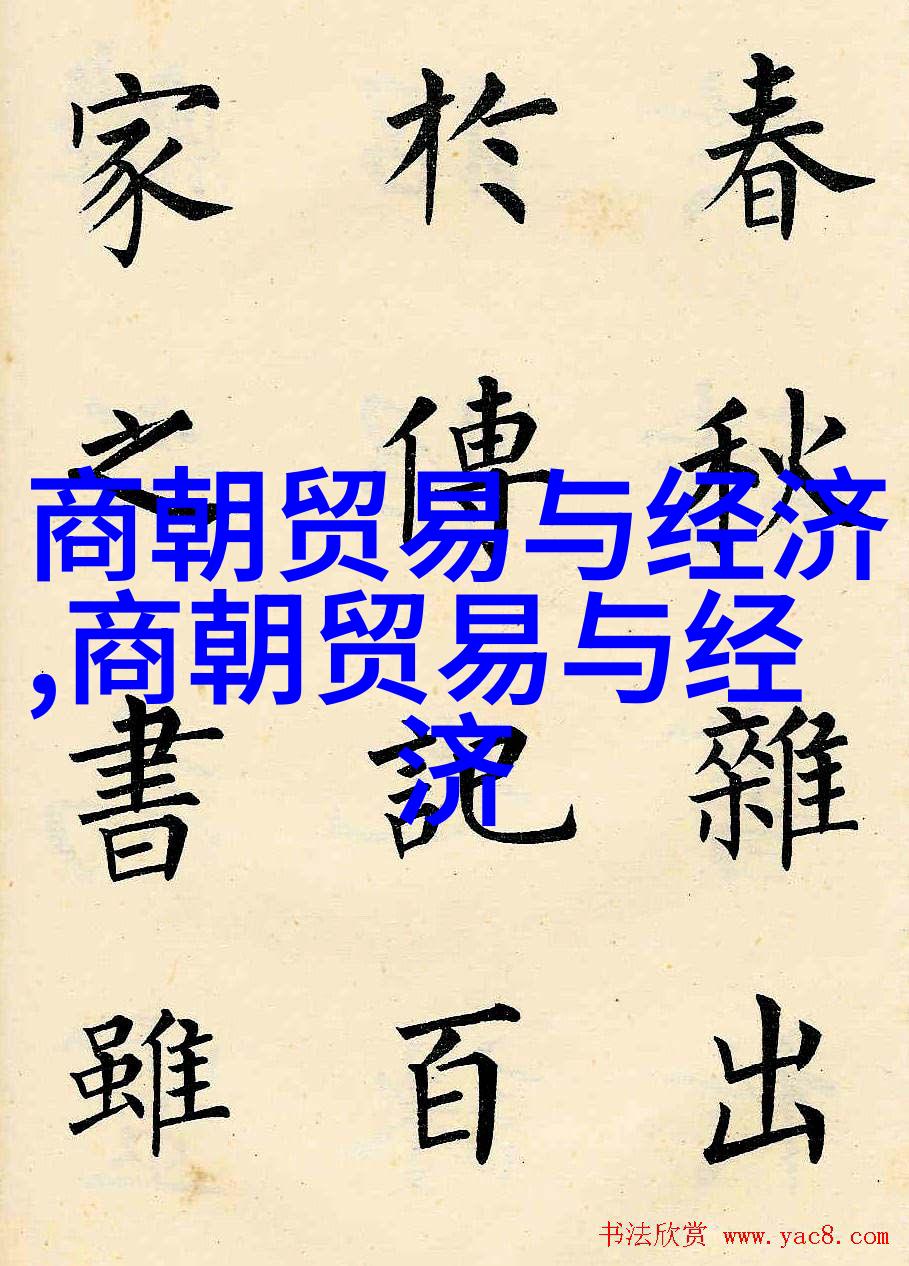 春秋雜出
於傳記百
家之書雖
商朝贸易与经济
,商朝贸易与经
济
书法欣赏 www.yac8.com